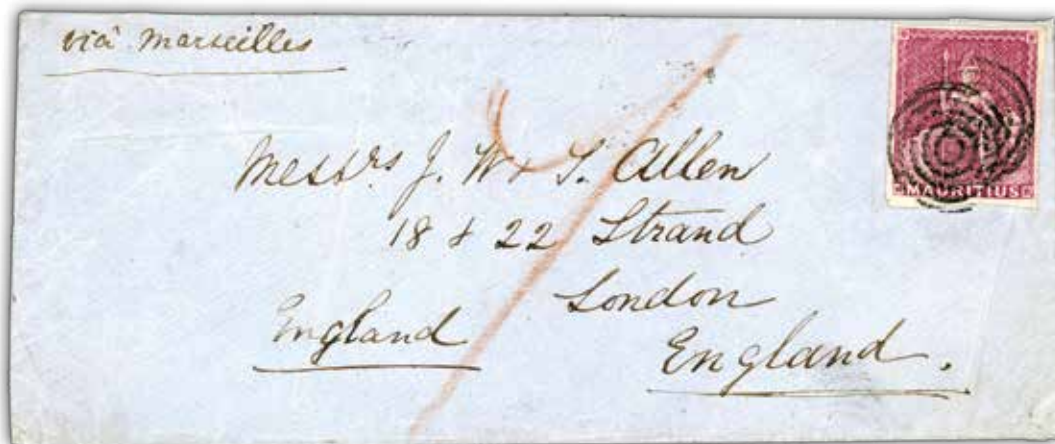 viâ Marseilles
MAURITIUS
Messrs J. W & T. Allen
18 & 22 Strand
London
England
England.